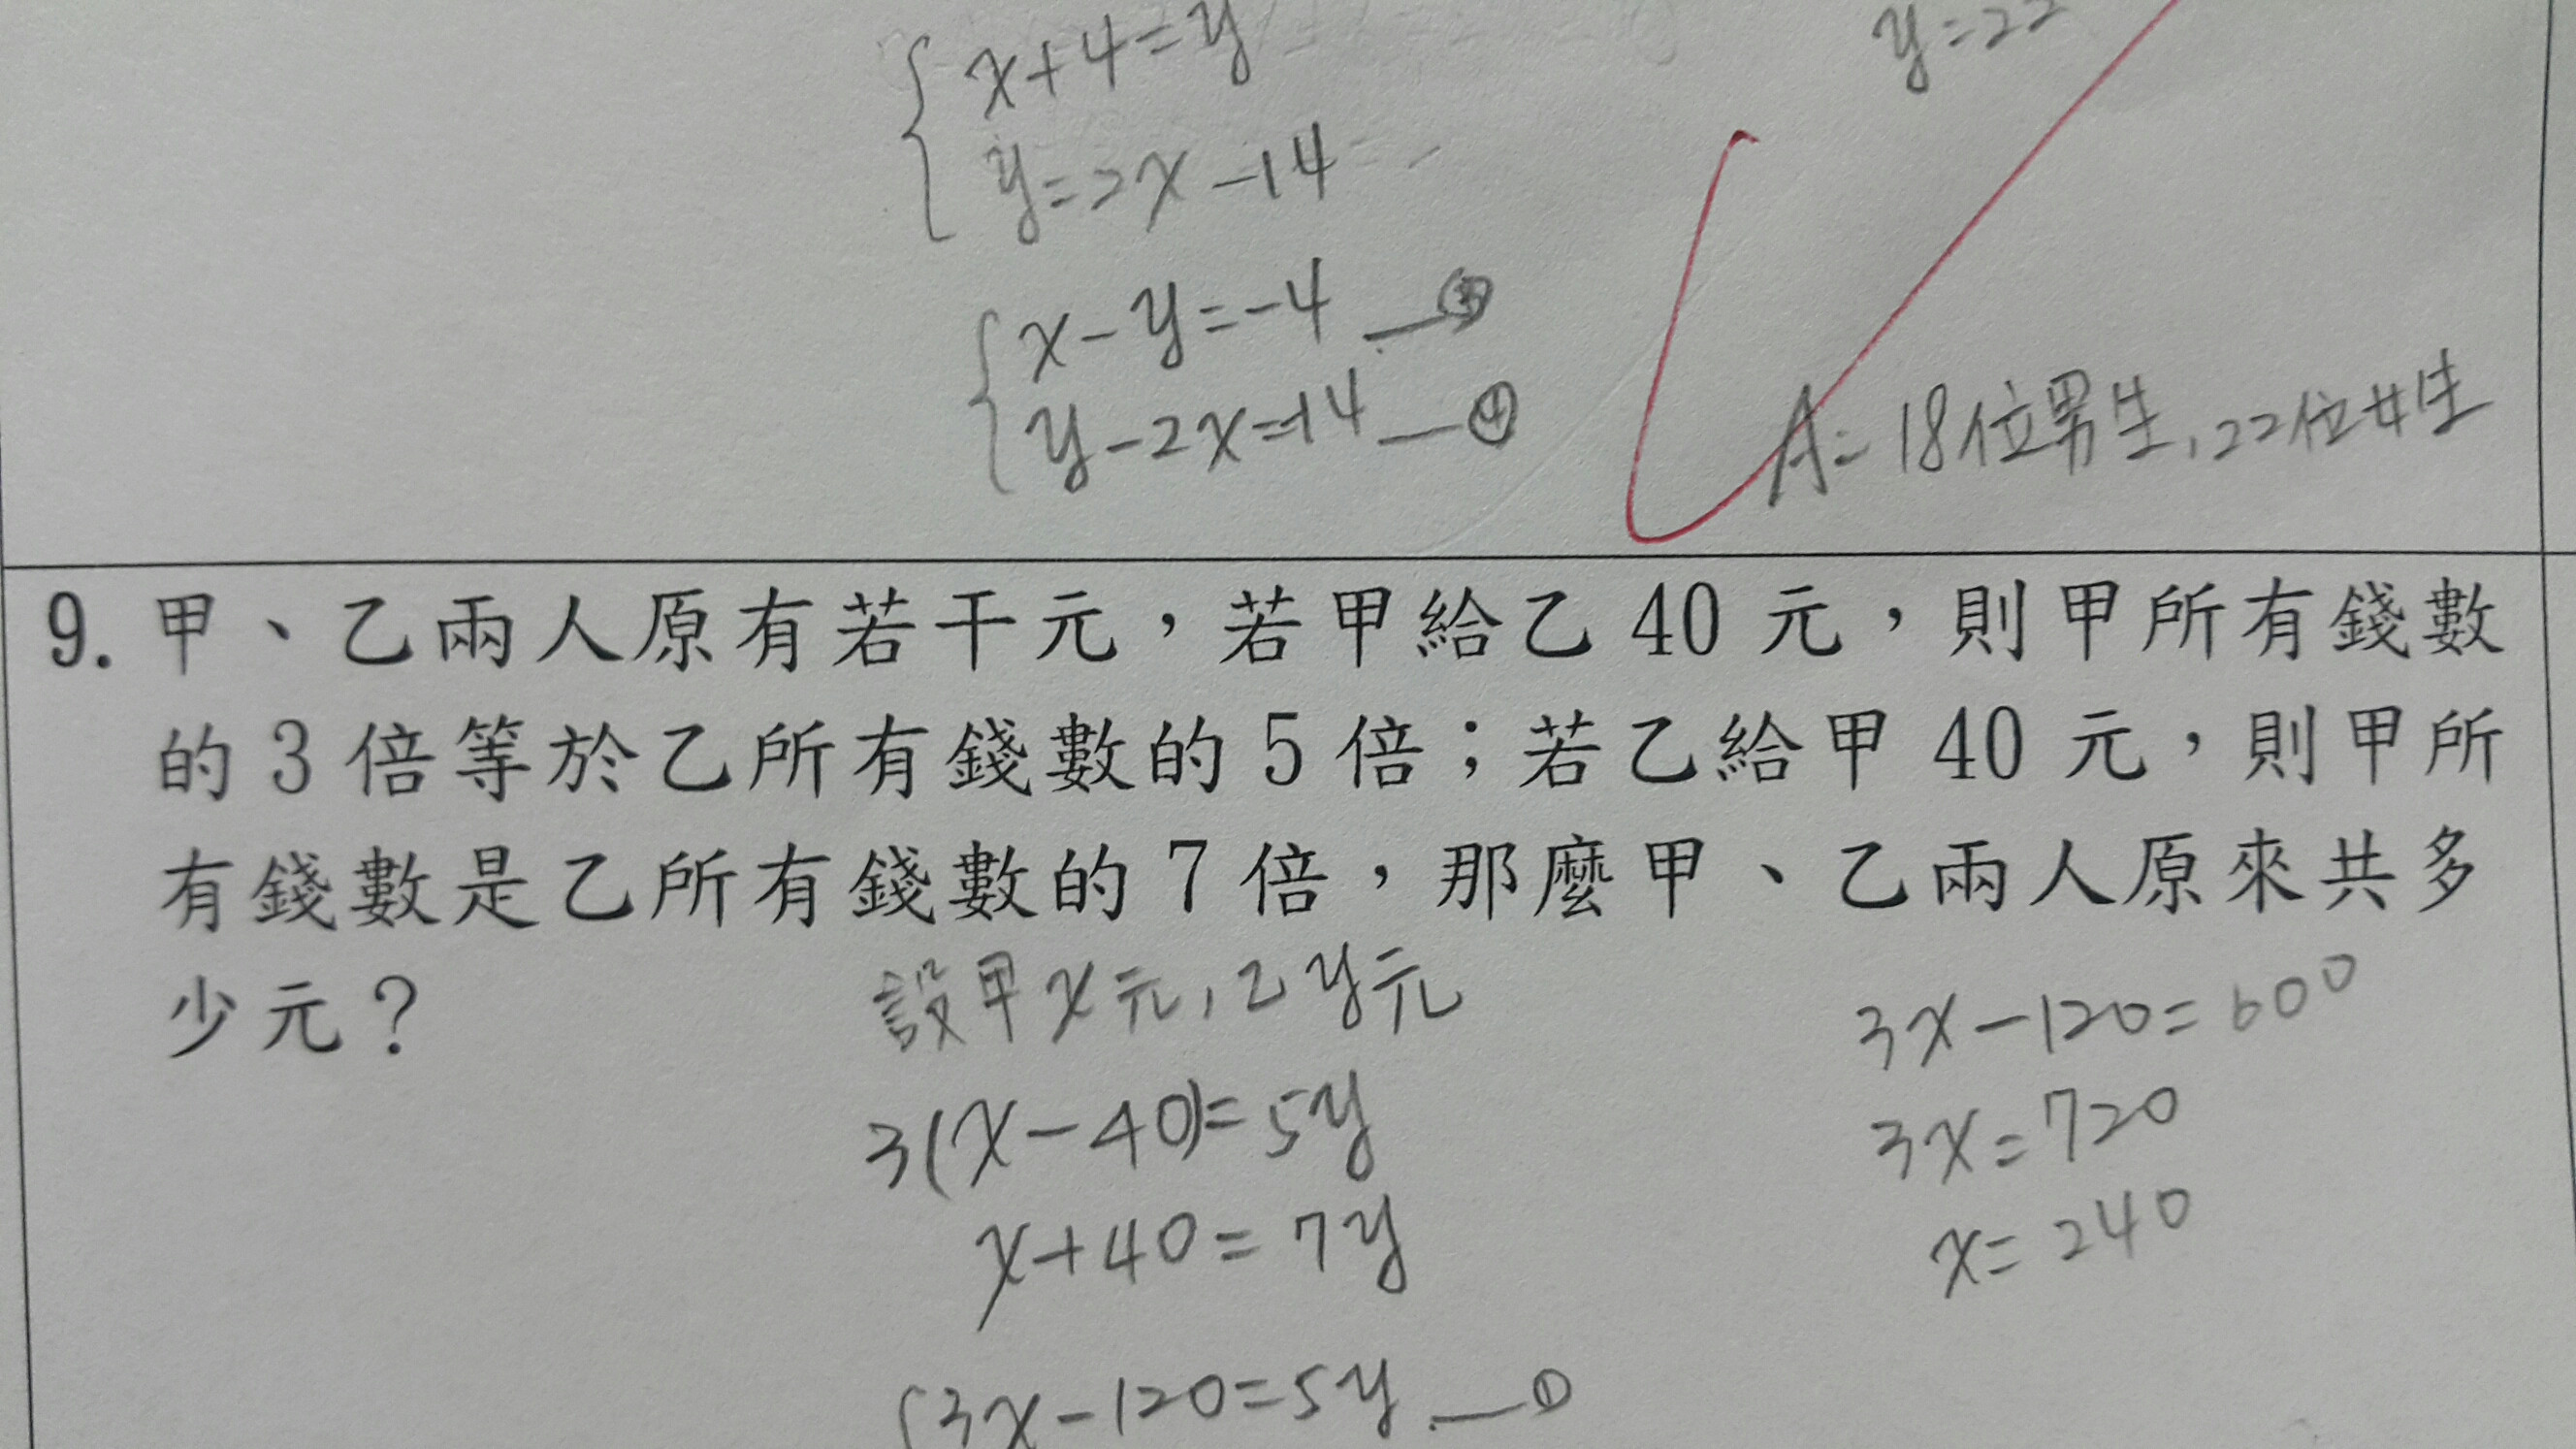 x+4=y
y=22
y=2x-14
x-y=-4 —③
y-2x=-14 —④
A=18位男生,22位女生
9. 甲、乙兩人原有若干元，若甲給乙 40 元，則甲所有錢數
的 3 倍等於乙所有錢數的 5 倍；若乙給甲 40 元，則甲所
有錢數是乙所有錢數的 7 倍，那麼甲、乙兩人原來共多
少元？
設甲x元,乙y元
3(x-40)=5y
x+40=7y
3x-120=5y —①
3x-120=600
3x=720
x=240